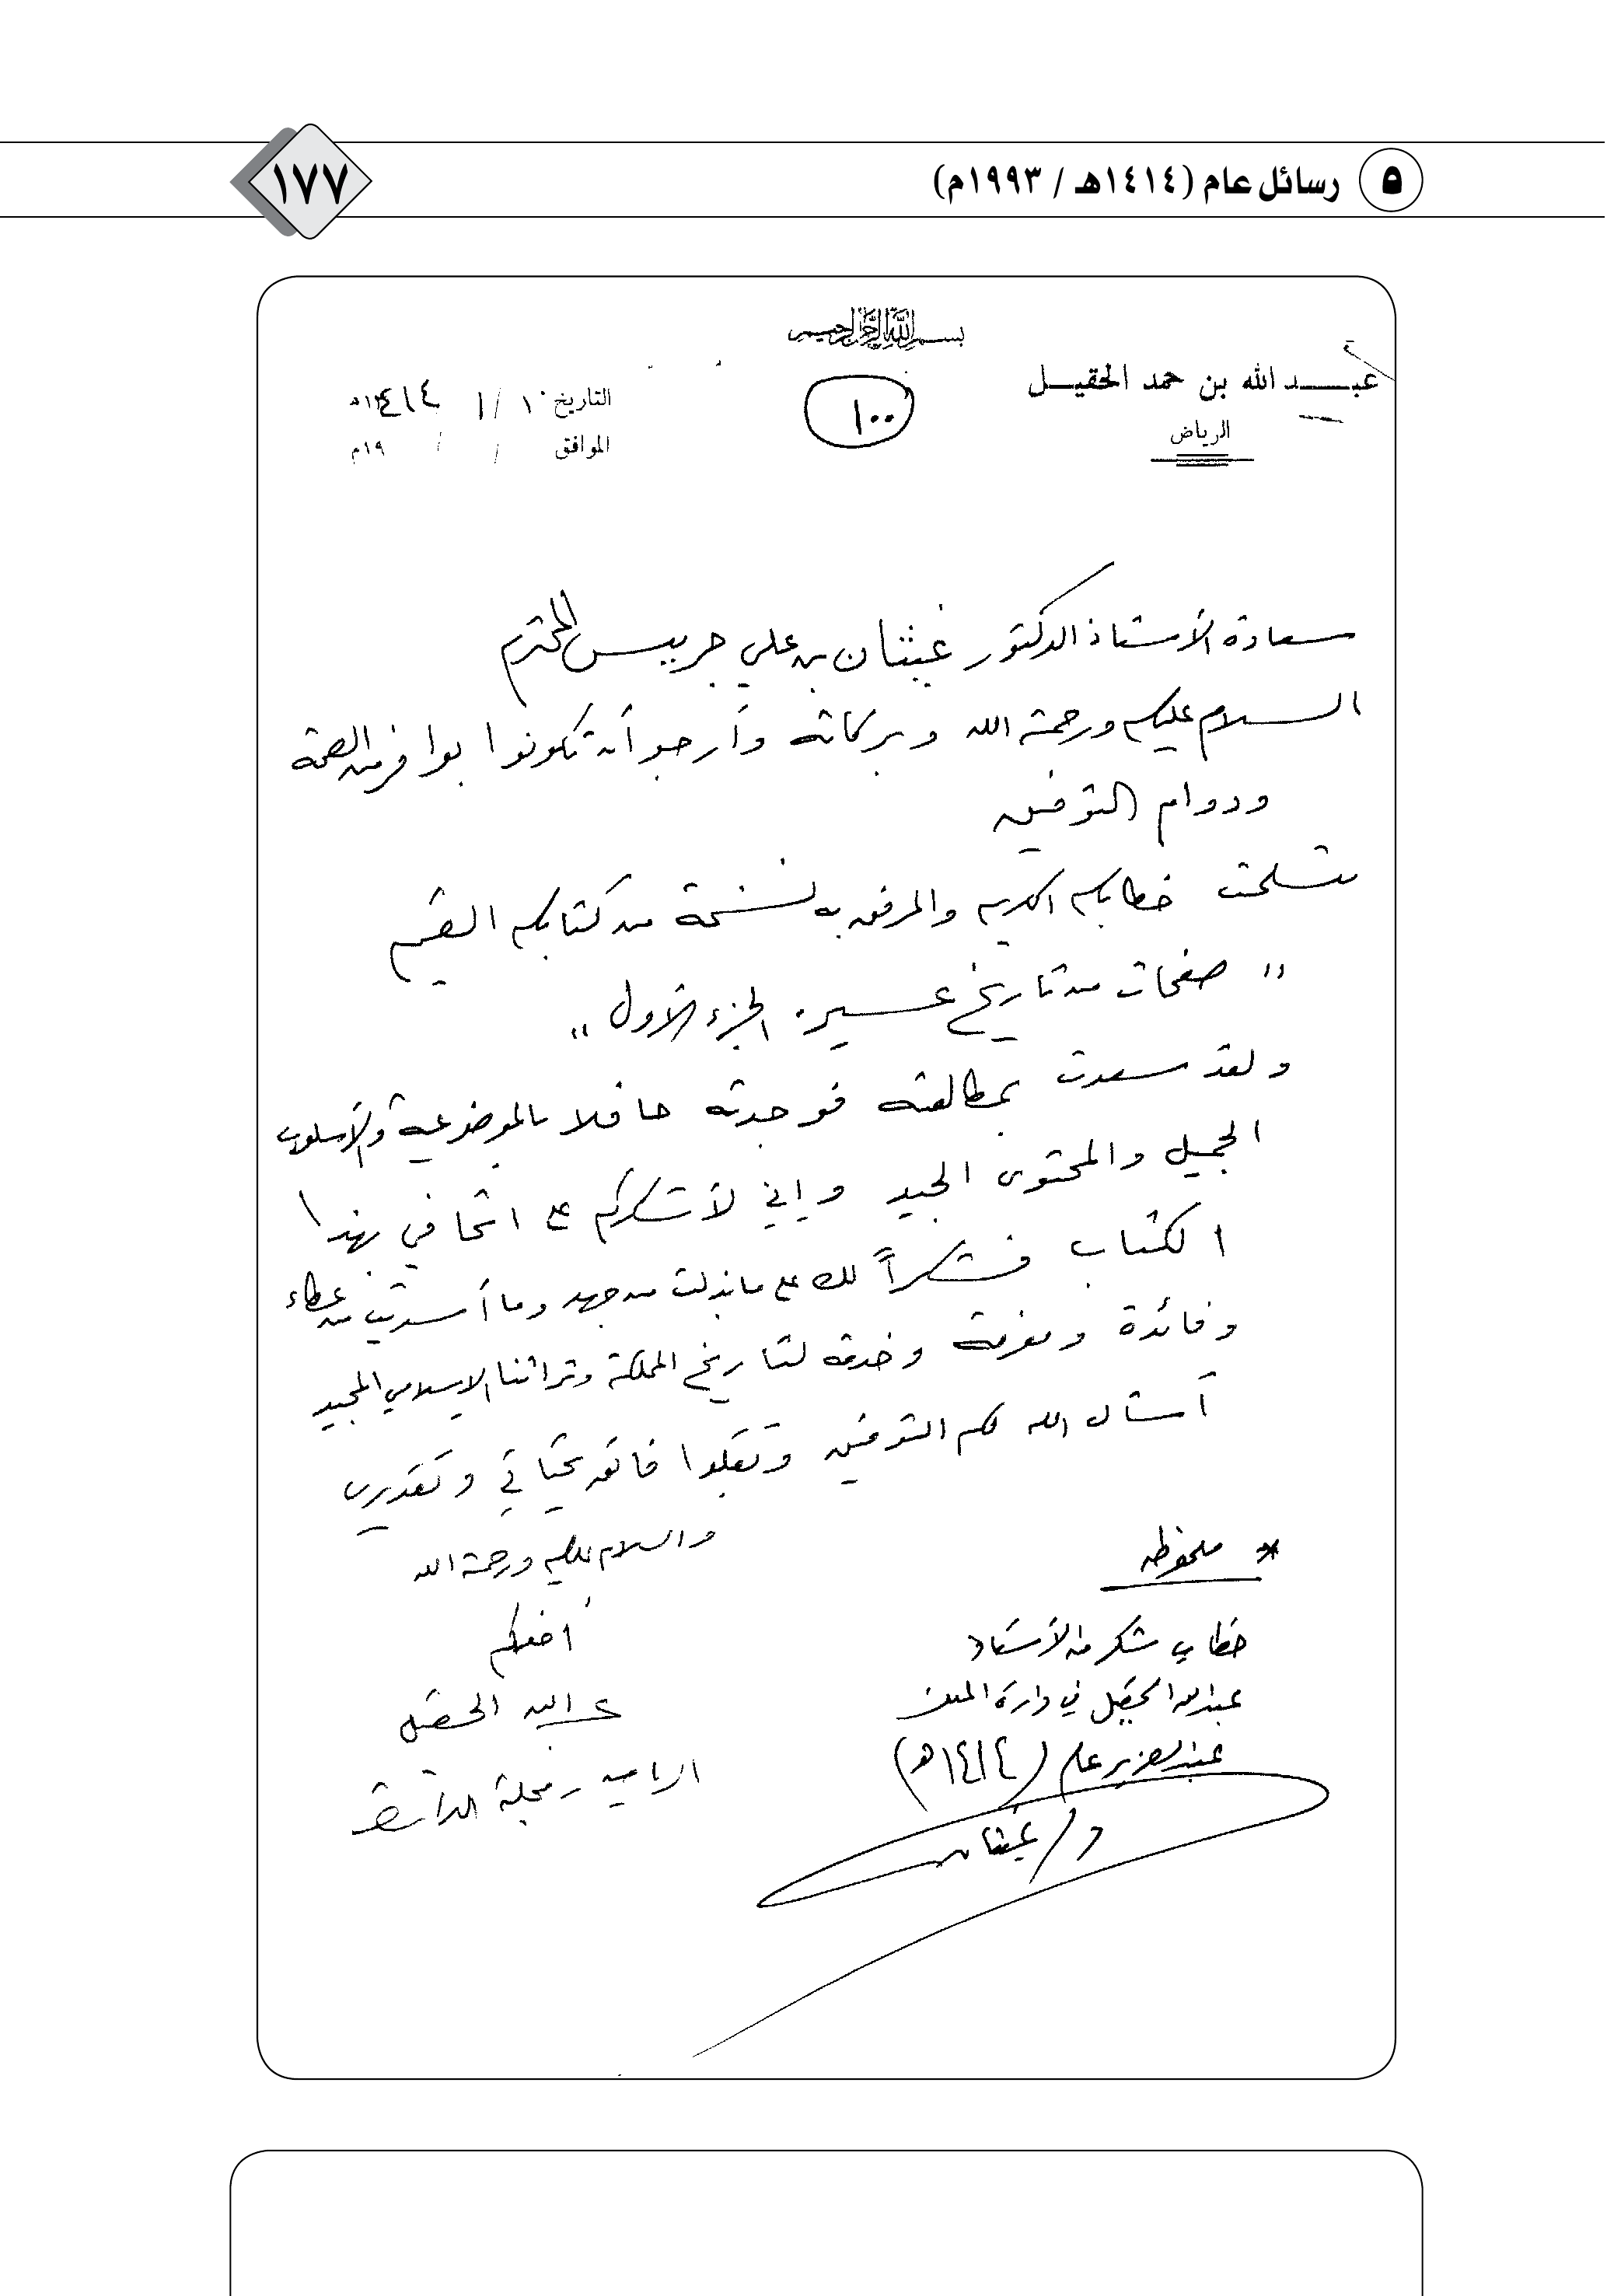 ٥ رسائل عام (١٤١٤هـ / ١٩٩٣م)
١٧٧
بسم الله الرحمن الرحيم
عبد الله بن حمد الحقيل
الرياض
١٠٠
التاريخ ١٠ / ١ / ١٤١٤هـ
الموافق / / ١٩م
سعادة الأستاذ الدكتور غيثان بن علي جريس المحترم
السلام عليكم ورحمة الله وبركاته وأرجو أن تكونوا بوافر من الصحة
ودوام التوفيق
تسلمت خطابكم الكريم والمرفق به نسخة من كتابكم القيم
" صفحات من تاريخ عسير. الجزء الأول "
ولقد سعدت بمطالعته فوجدته حافلا بالموضوعية والأسلوب
الجميل والمحتوى الجيد وإني لأشكركم على اتحافي بهذا
الكتاب فشكراً لك على ما بذلت من جهد وما أسديت من عطاء
وفائدة ومعرفة وخدمة لتاريخ المملكة وتراثنا الإسلامي المجيد
أسأل الله لكم التوفيق وتقبلوا فائق تحياتي وتقديري
والسلام عليكم ورحمة الله
أخوكم
عبد الله الحقيل
الرياض - مجلة الدارة
* ملحوظه
خطاب شكر من الأستاذ
عبدالله الحقيل في دارة الملك
عبدالعزيز عام (١٤١٤هـ)
د/ غيثان